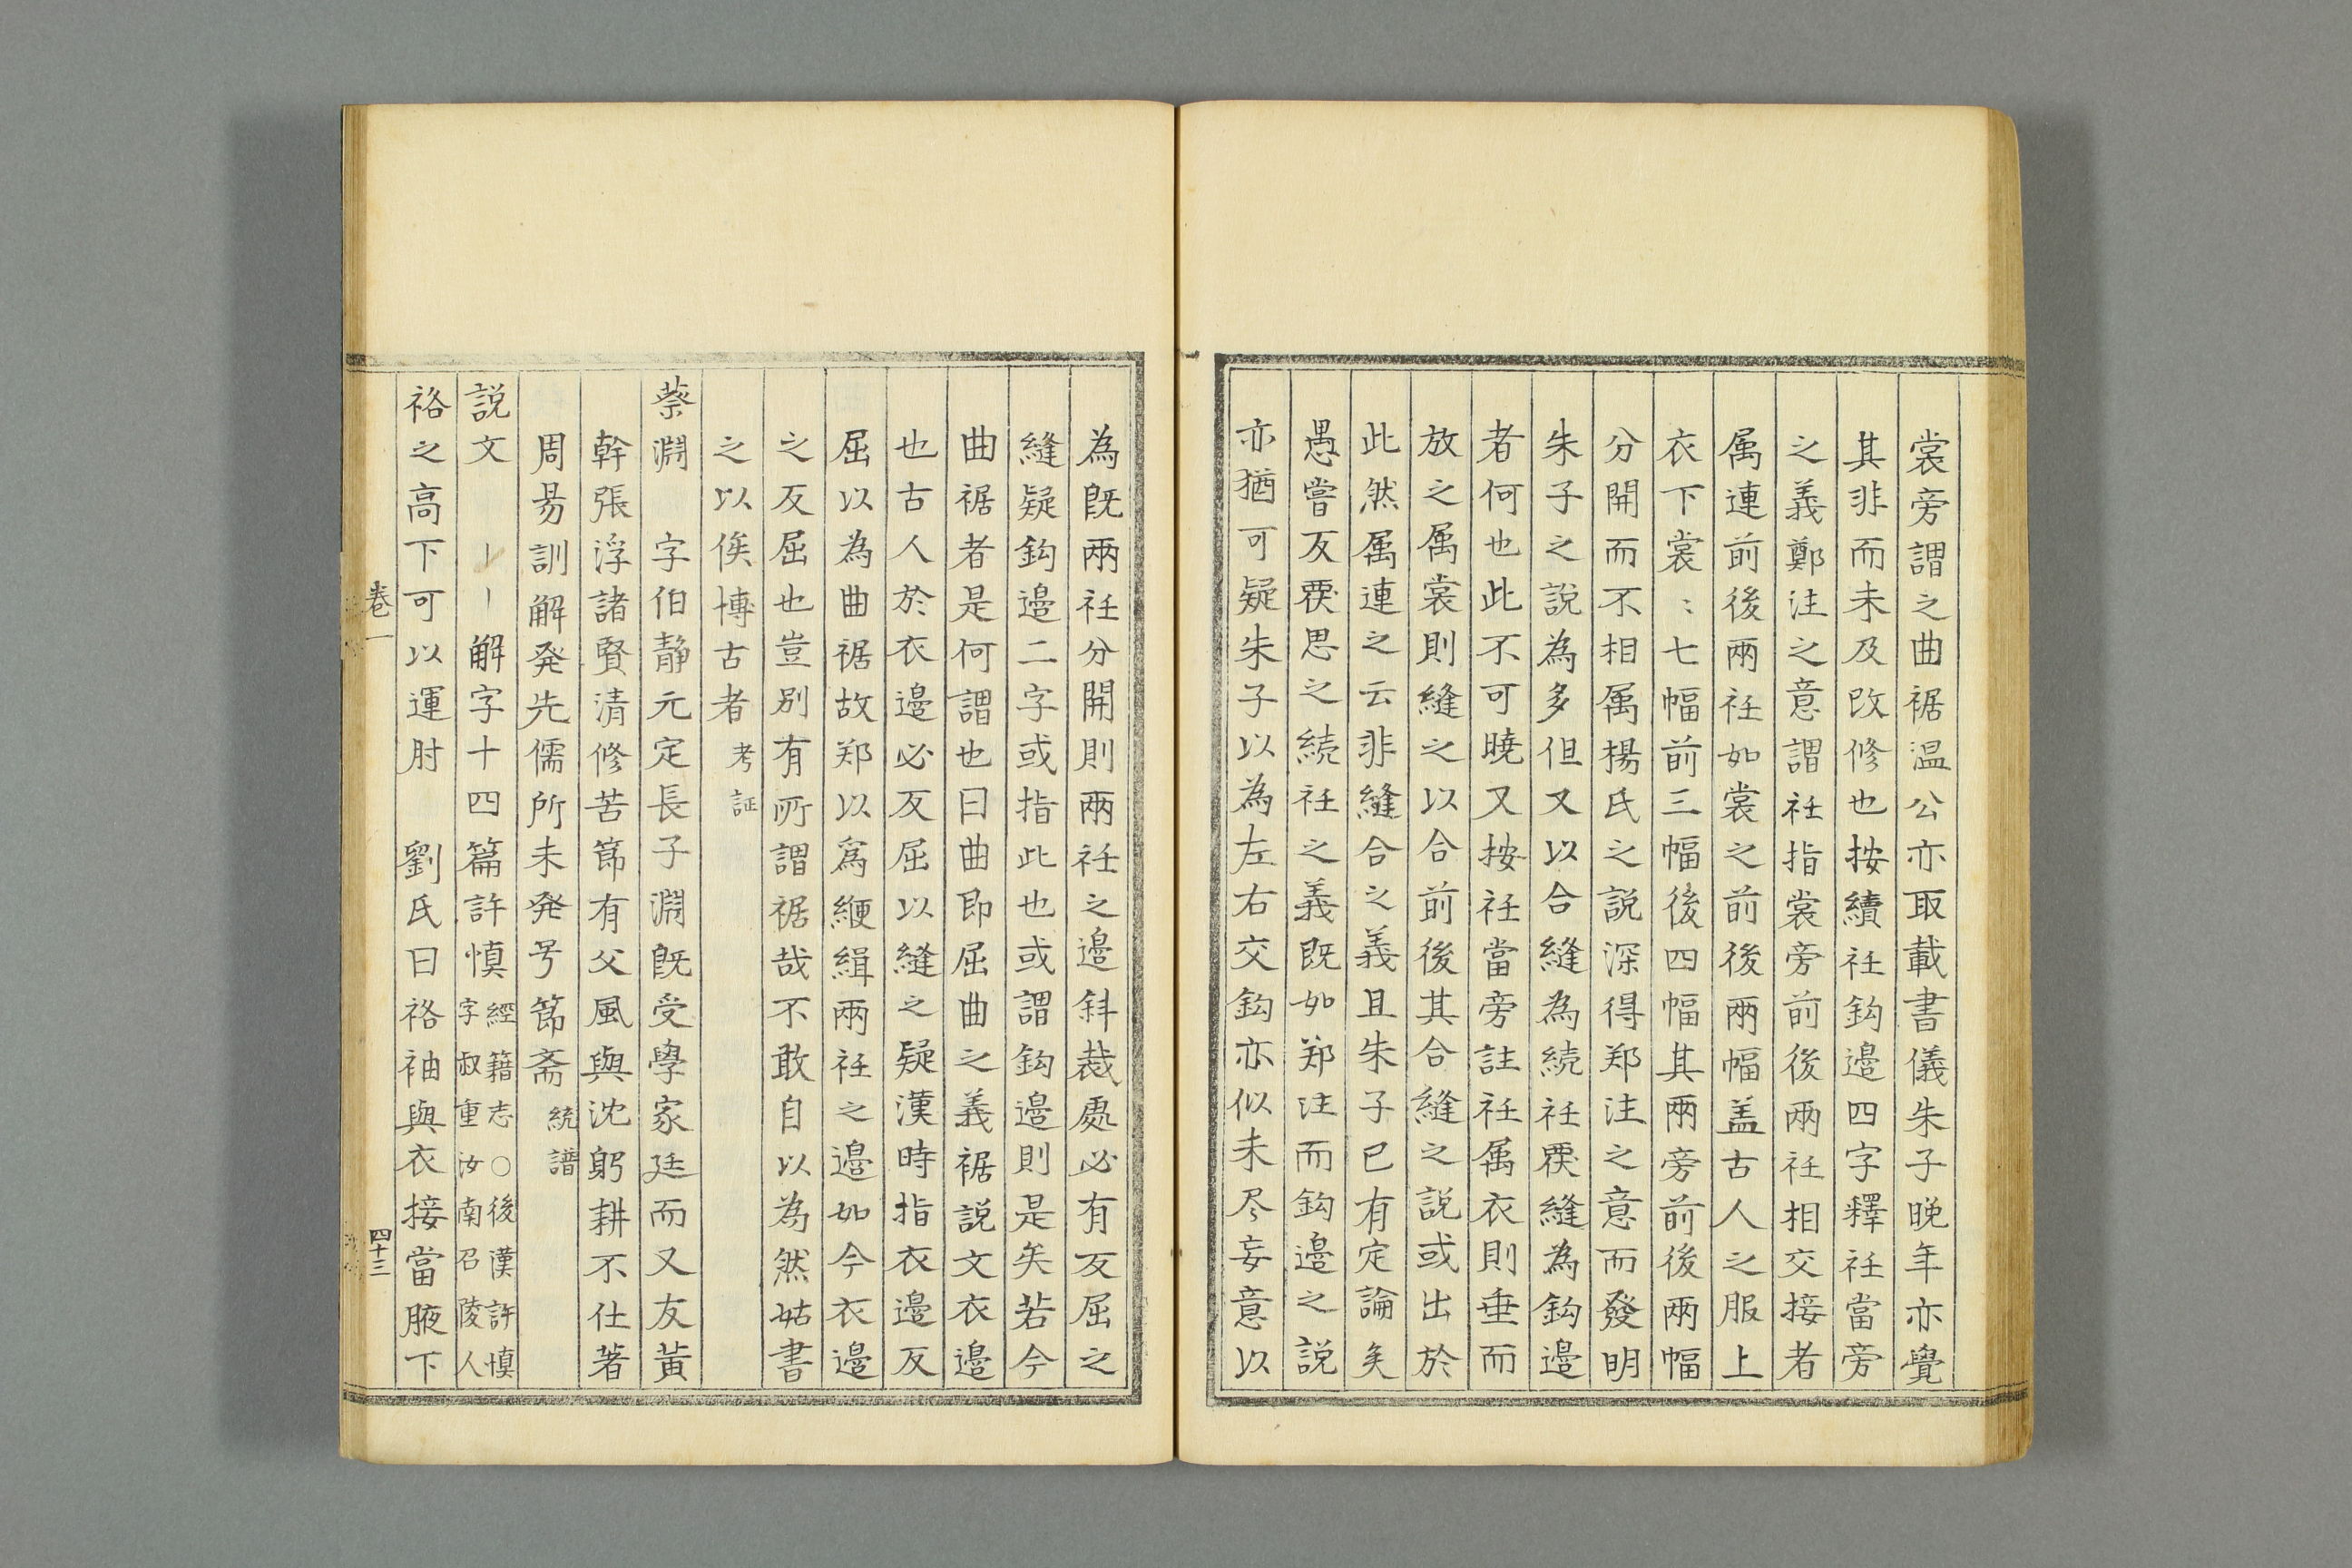 裳旁謂之曲裾温公亦取載書儀朱子晚年亦覺
其非而未及改修也按續衽鈎邉四字釋衽當旁
之義鄭注之意謂衽指裳旁前後兩衽相交接者
属連前後兩衽如裳之前後兩幅盖古人之服上
衣下裳〻七幅前三幅後四幅其兩旁前後兩幅
分開而不相属楊氏之説深得郑注之意而發明
朱子之説為多但又以合縫為続衽覆縫為鈎邉
者何也此不可曉又按衽當旁註衽属衣則垂而
放之属裳則縫之以合前後其合縫之説或出於
此然属連之云非縫合之義且朱子已有定論矣
愚嘗反覆思之続衽之義既如郑注而鈎邉之説
亦猶可疑朱子以為左右交鈎亦似未尽妄意以
為既兩衽分開則兩衽之邉斜裁處必有反屈之
縫疑鈎邉二字或指此也或謂鈎邉則是矣若今
曲裾者是何謂也曰曲即屈曲之義裾説文衣邉
也古人於衣邉必反屈以縫之疑漢時指衣邉反
屈以為曲裾故郑以爲緶緝兩衽之邉如今衣邉
之反屈也豈別有所謂裾哉不敢自以為然姑書
之以俟博古者 考証
蔡淵 字伯静元定長子淵既受學家廷而又友黃
幹張浮諸賢清修苦節有父風與沈躬耕不仕著
周易訓解発先儒所未発号節斎 統譜
説文 丨丨解字十四篇許慎 經籍志○後漢許慎
字叔重汝南召陵人
袼之高下可以運肘 劉氏曰袼袖與衣接當腋下
卷一
四十三